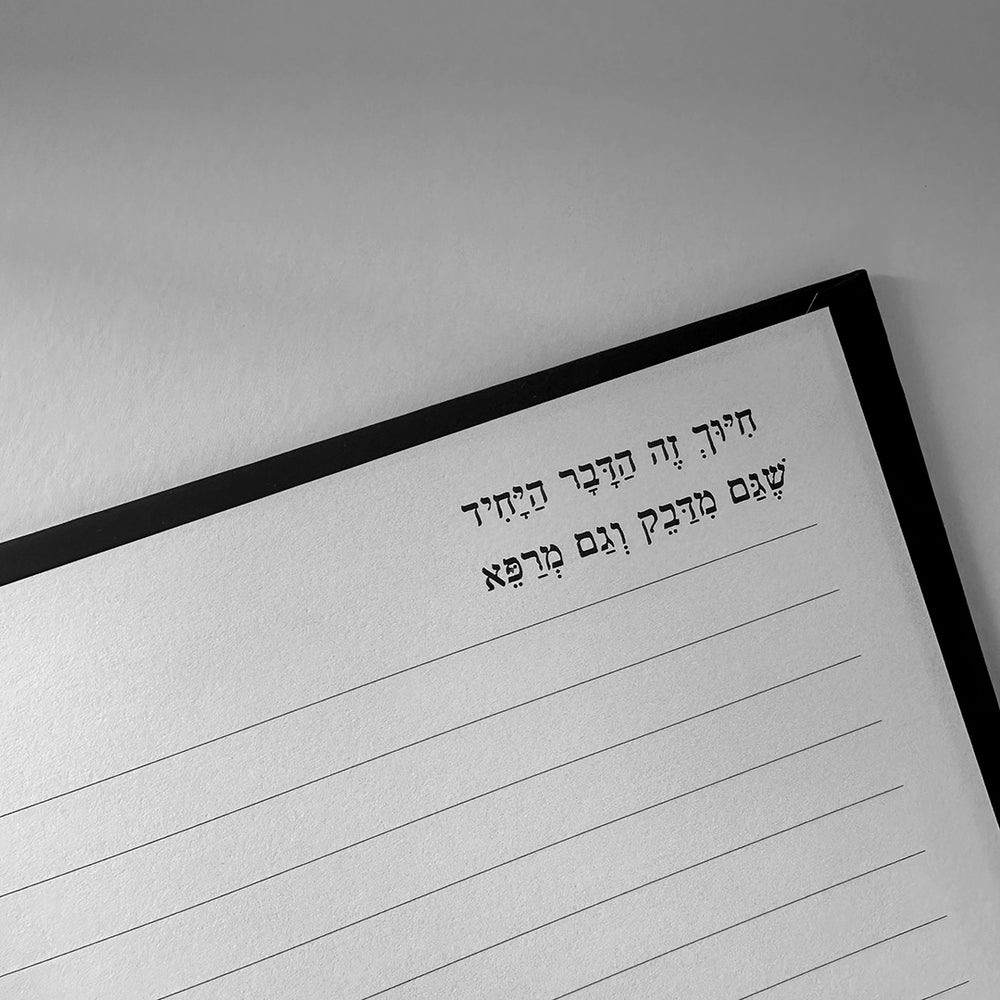 חִיּוּךְ זֶה הַדָּבָר הַיָּחִיד
שֶׁגַּם מִדַּבֵּק וְגַם מְרַפֵּא